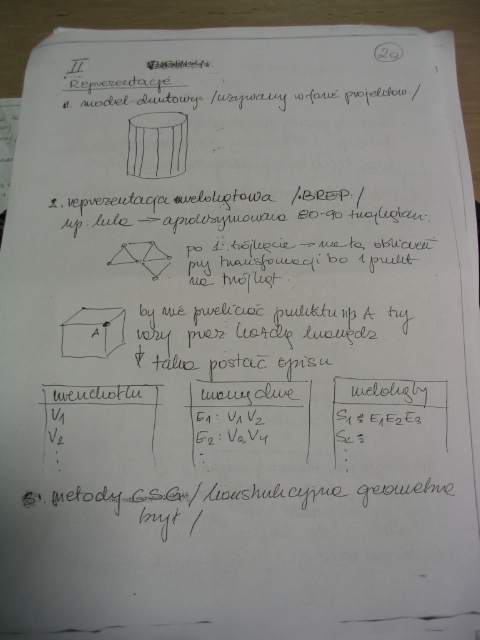 2a
II
Reprezentacje
1. model drutowy /używany w fazie projektów/
2. reprezentacja wielokątowa /BREP/
np. kula → aproksymowana 80-90 trójkątami.
po 1. trójkącie → mało obliczeń
przy transformacji bo 1 punkt
na trójkąt.
by nie przeliczać punktu np A trzy
razy przez każdą krawędź
A
↓ taka postać opisu
wierzchołki krawędzie wielokąty
V1 E1: V1 V2 S1 = E1E2E3
V2 E2: V3V4 S2 =
3. metody CSG / konstrukcyjna geometria
brył /